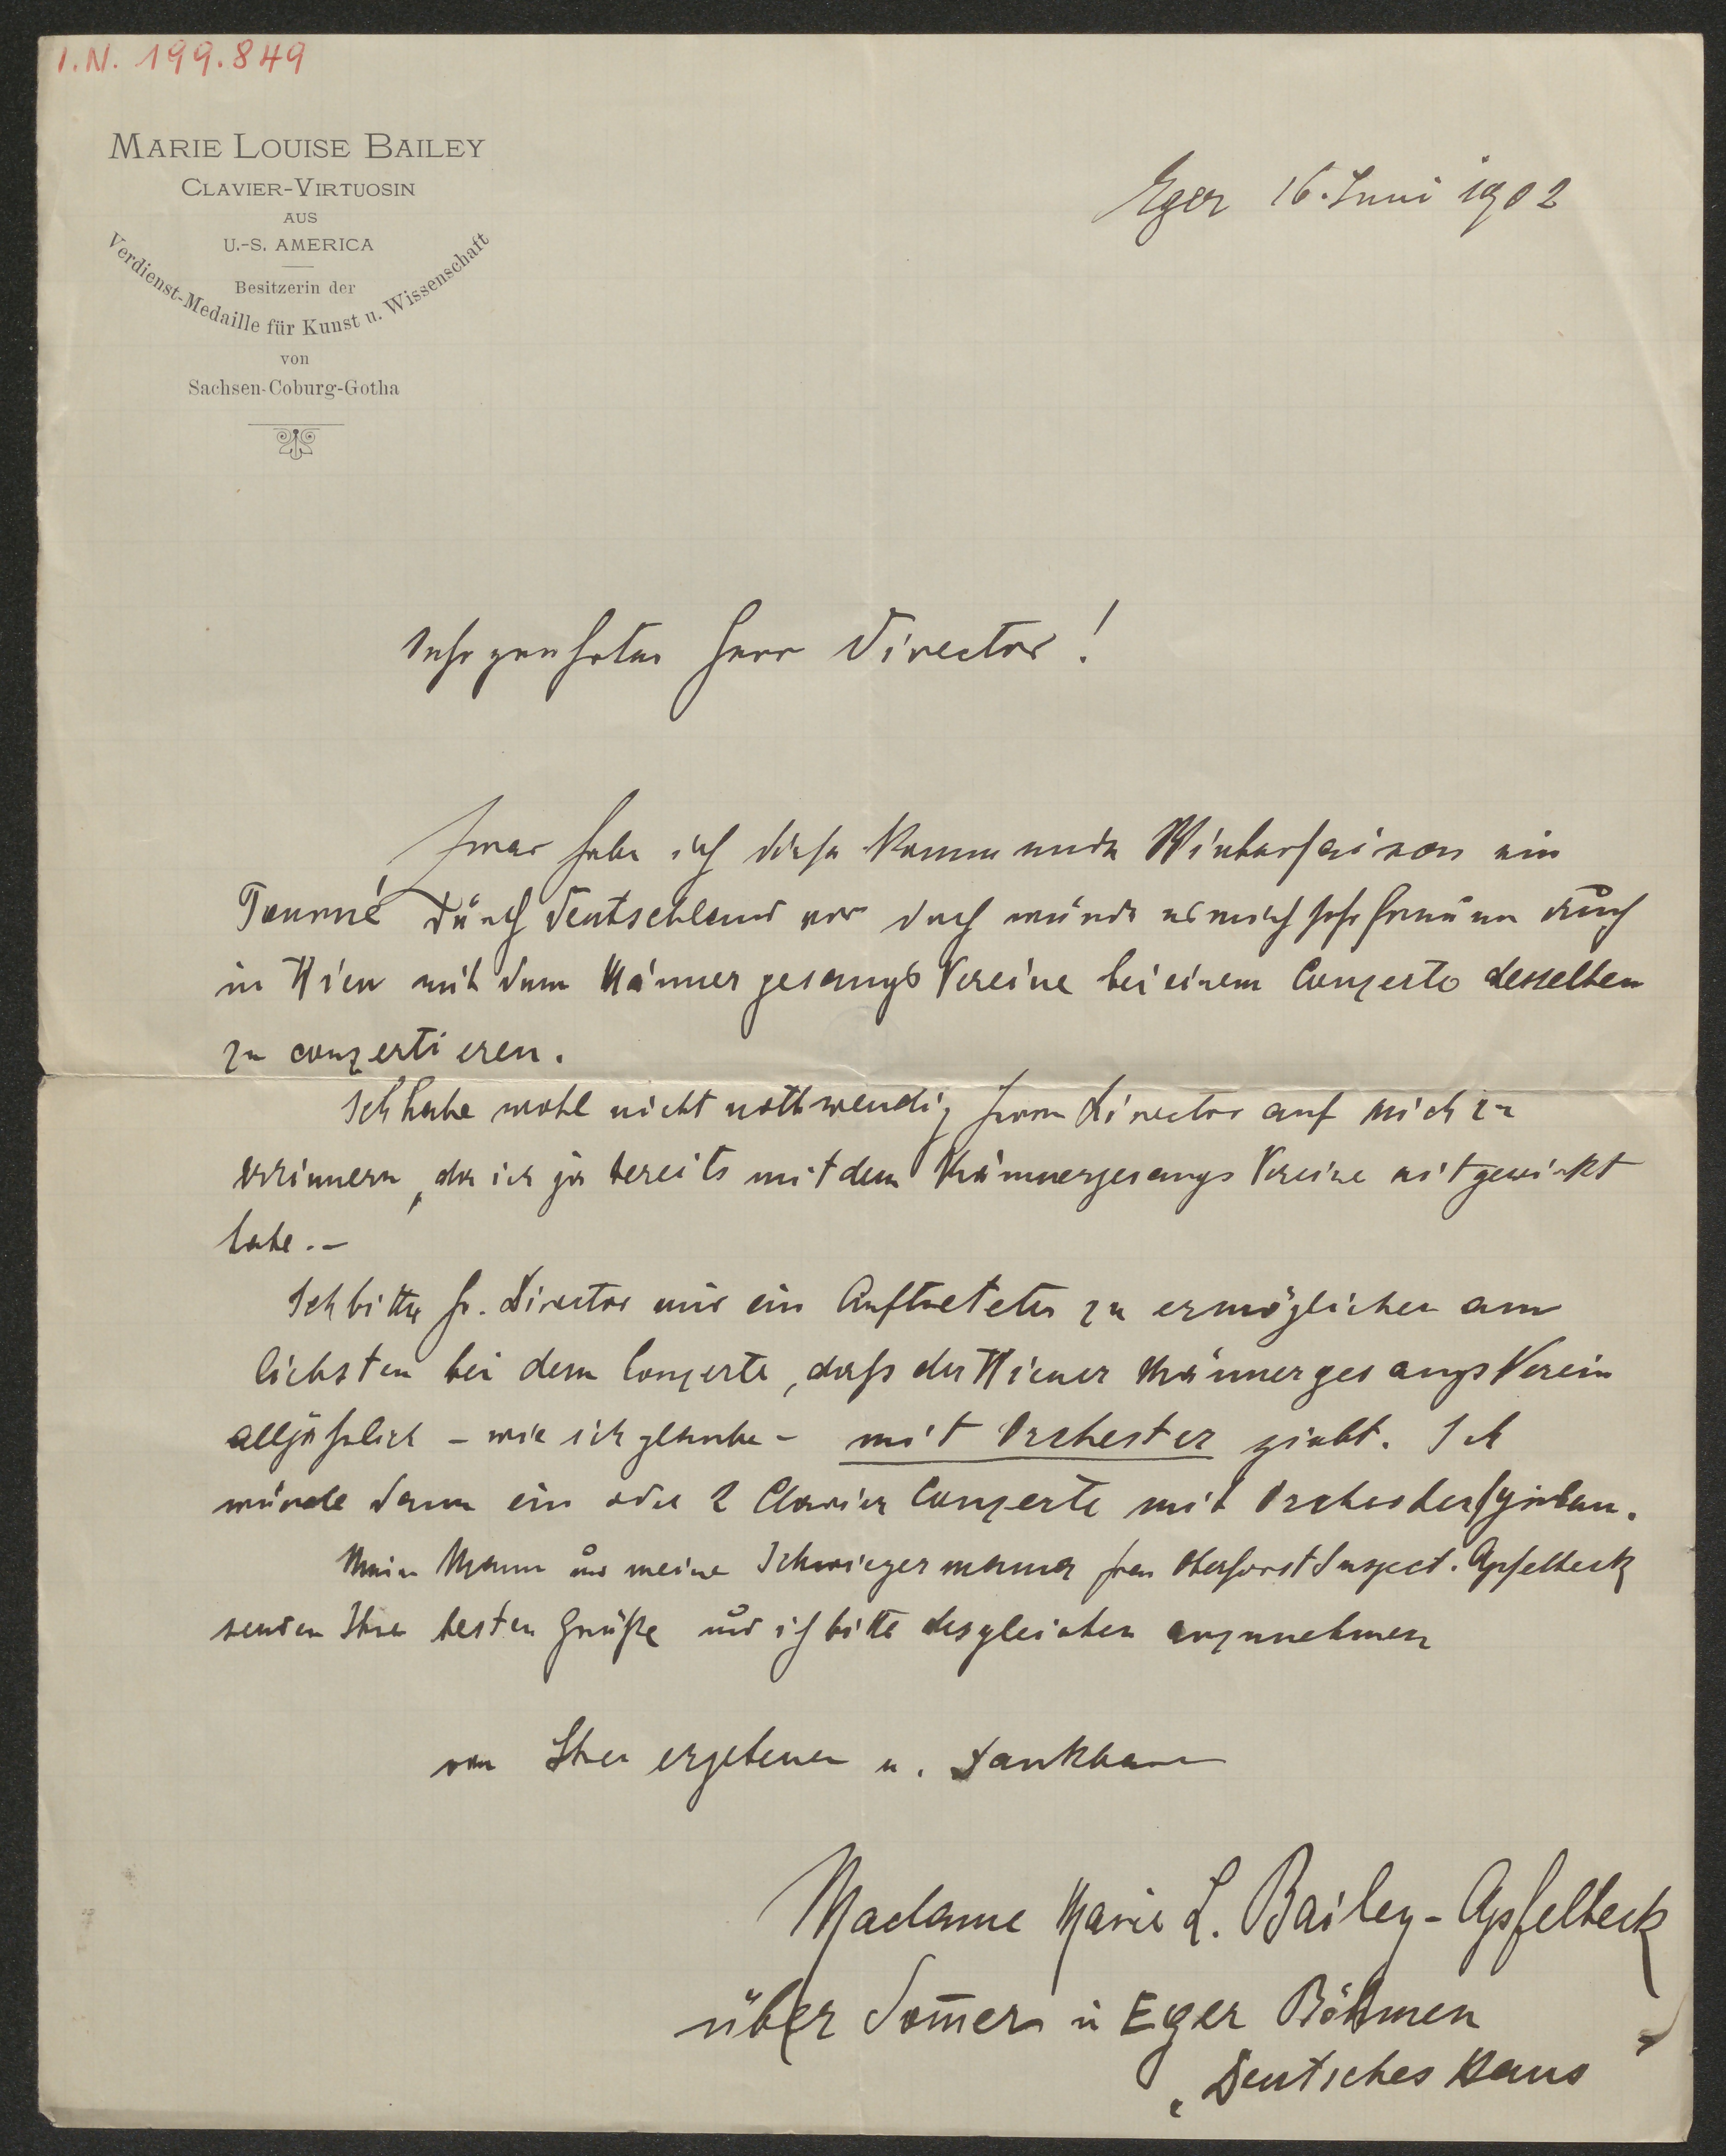 I.N. 199.849
MARIE LOUISE BAILEY
CLAVIER-VIRTUOSIN
AUS
U.-S. AMERICA
Besitzerin der
Verdienst-Medaille für Kunst u. Wissenschaft
von
Sachsen-Coburg-Gotha
Eger 16. Juni 1902
Sehr geehrter Herr Director!
Zwar habe ich diese kommende Wintersaison ein
Tourné durch Deutschland vor doch würde es mich sehr freuen auch
in Wien mit dem Männergesangs Vereine bei einem Conzerte desselben
zu conzertieren.
Ich habe wohl nicht nothwendig Herrn Director auf mich zu
erinnern, da ich ja bereits mit dem Männergesangs Vereine mitgewirkt
habe.-
Ich bitte Hr. Director mir ein Auftreteten zu ermöglichen am
liebsten bei dem Conzerte, daß der Wiener Männergesangs Verein
alljährlich - wie ich glaube - mit Orchester giebt. Ich
würde dann ein oder 2 Clavier Conzerte mit Orchester spielen.
Mein Mann und meine Schwiegermama Frau Oberforst Inspect. Apfelbeck
senden Ihnen besten Grüße und ich bitte desgleichen anzunehmen
von Ihrer ergebenen u. dankbaren
Madame Marie L. Bailey-Apfelbeck
über Som̅er in Eger Böhmen
„Deutsches Haus"